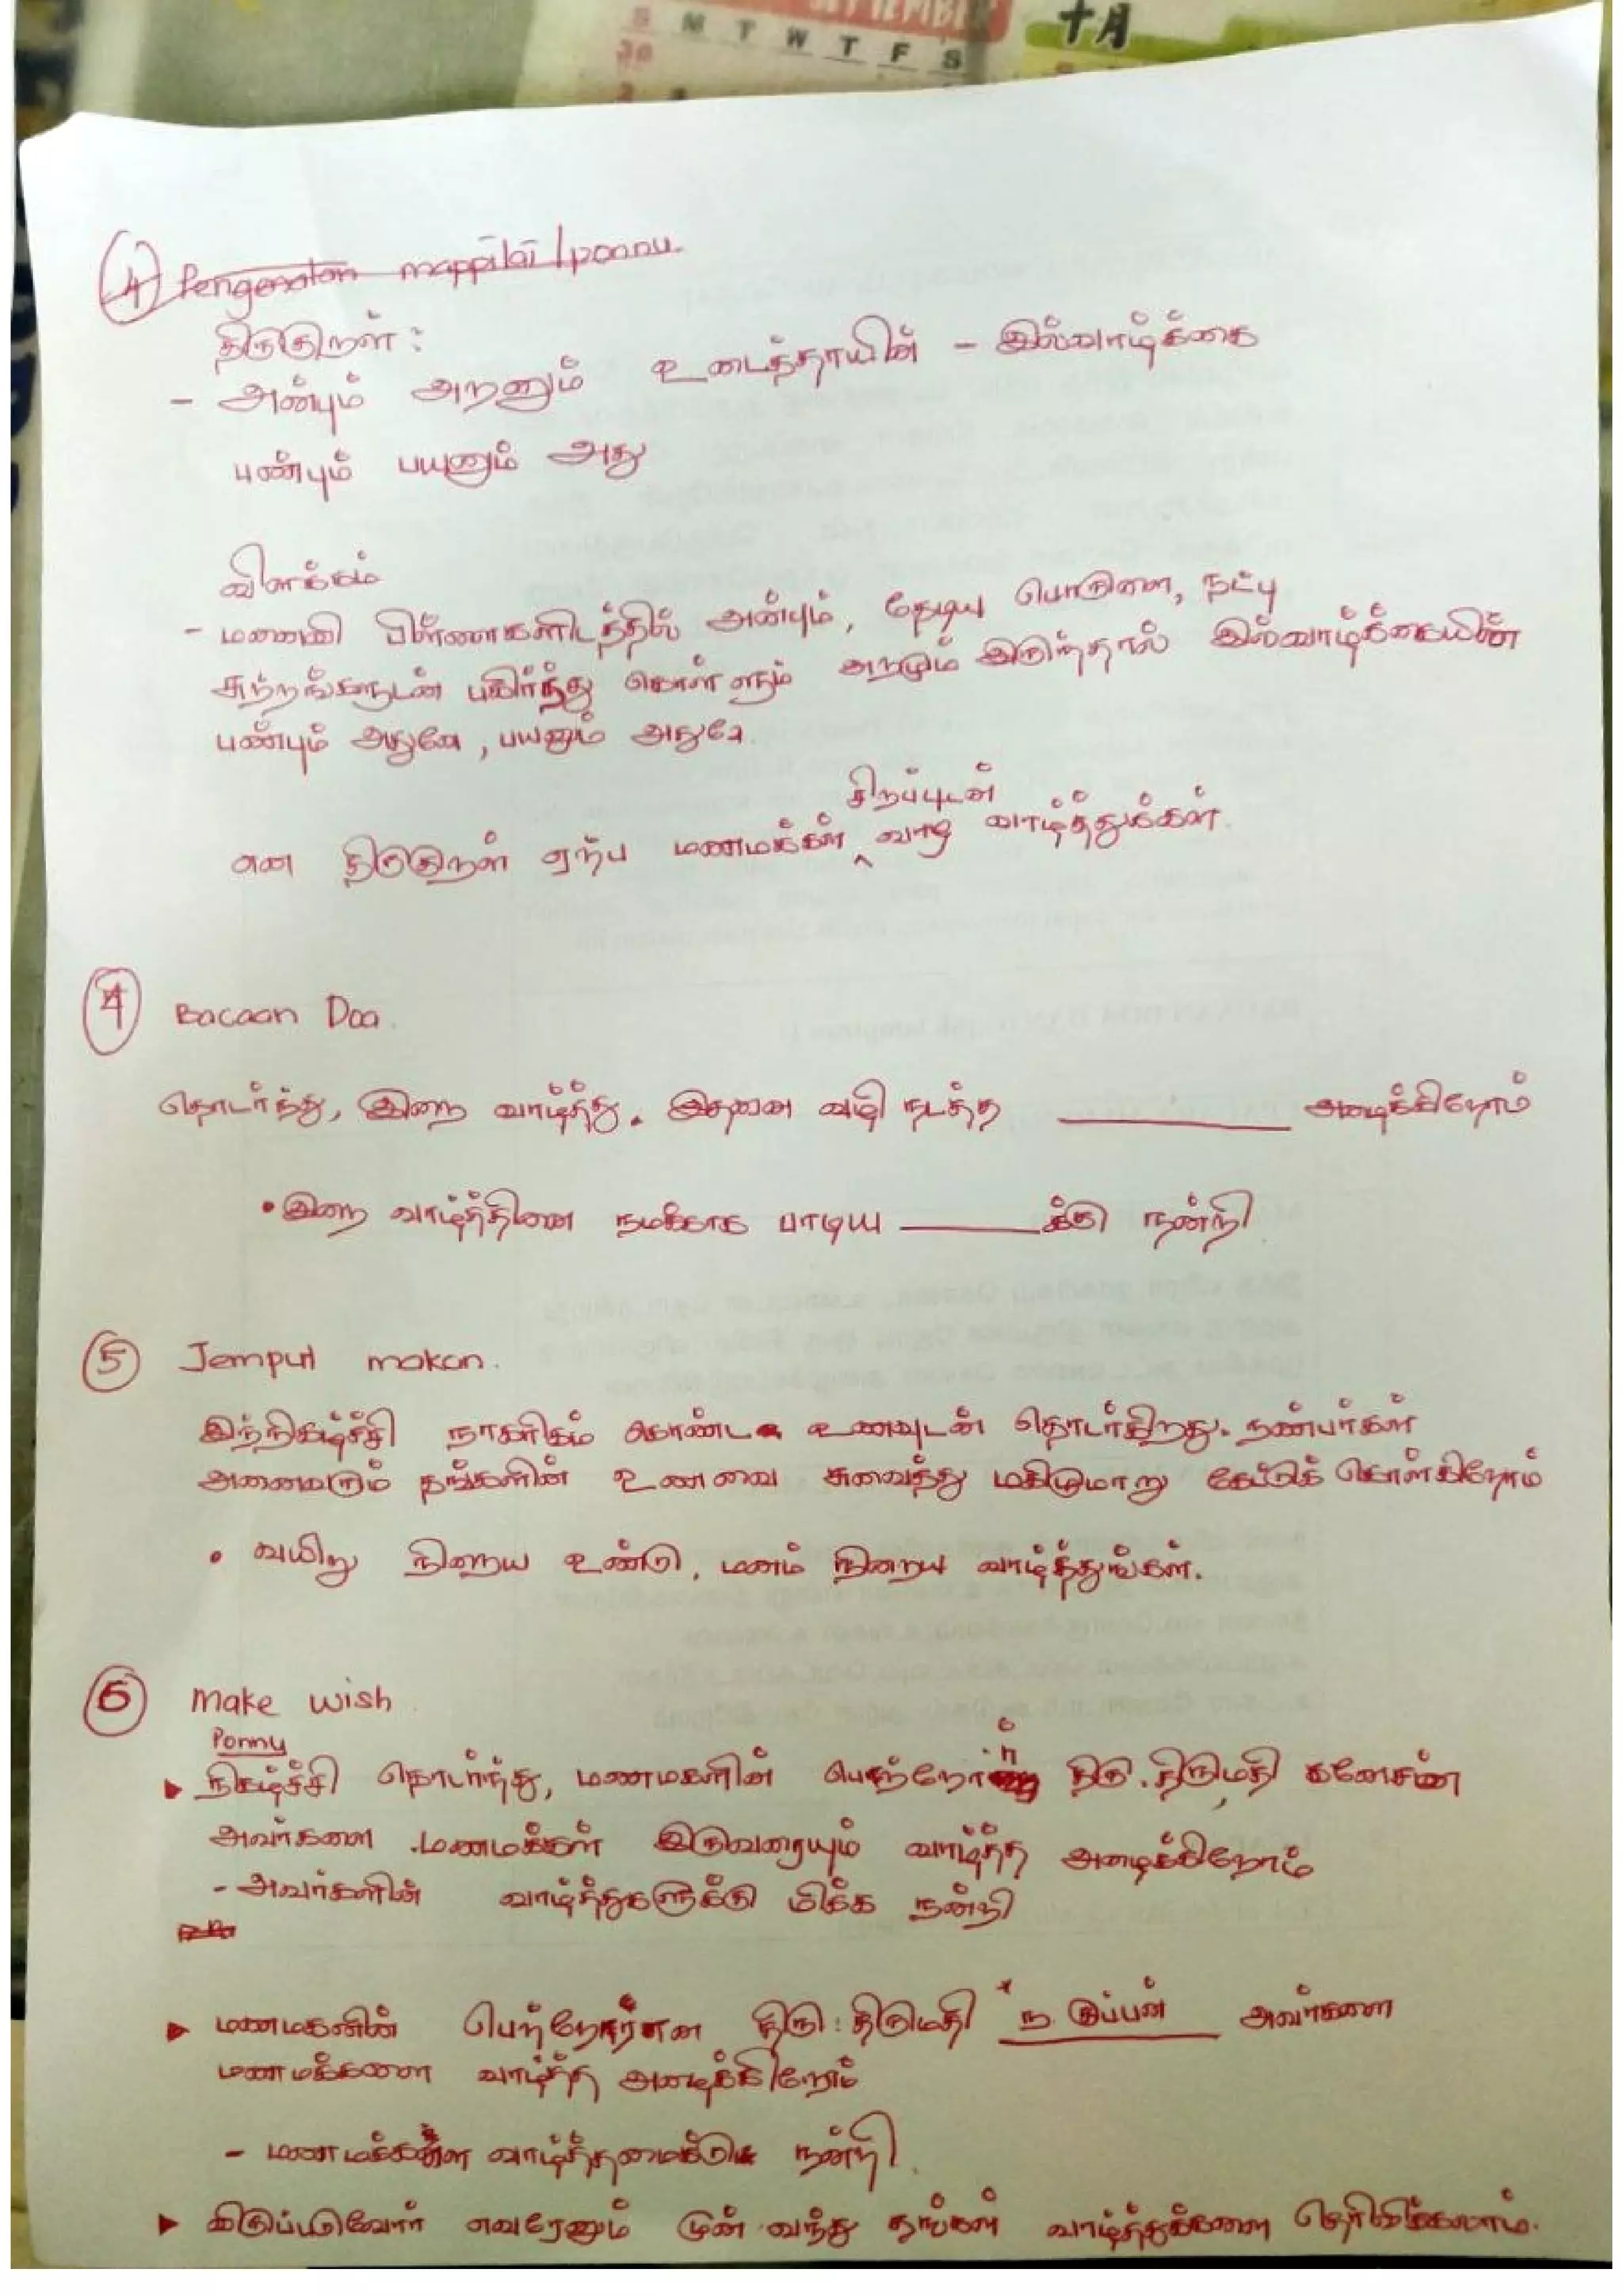 SEPTEMBER
S M T W T F S
30
2
தA
4 Pengenalan mappilai / ponnu.
திருகுறள் :
- அன்பும் அறனும் உடைத்தாயின் - இல்வாழ்க்கை
பண்பும் பயனும் அது
விளக்கம்
- மனைவி பிள்ளைகளிடத்தில் அன்பும், தேடிய பொருளை, நட்பு
சுற்றங்களுடன் பகிர்ந்து கொள்ளும் அறமும் இருந்தால் இல்வாழ்க்கையின்
பண்பும் அதுவே, பயனும் அதுவே.
சிறப்புடன்
என திருகுறள் ஏற்ப மணமக்கள் ^ வாழ வாழ்த்துக்கள்.
4 Bacaan Doa.
தொடர்ந்து, இறை வாழ்த்து. இதனை வழி நடத்த ______ அழைக்கிறோம்
• இறை வாழ்த்தினை நமக்காக பாடிய ______க்கு நன்றி
5 Jemput makan.
இந்நிகழ்ச்சி நாகரிகம் கொண்ட உணவுடன் தொடர்கிறது. நண்பர்கள்
அனைவரும் தங்களின் உணவை சுவைத்து மகிழுமாறு கேட்டுக் கொள்கிறோம்
• வயிறு நிறைய உண்டு, மனம் நிறைய வாழ்த்துங்கள்.
6 Make wish.
Ponnu
▸ நிகழ்ச்சி தொடர்ந்து, மணமகளின் பெற்றோர் திரு. திருமதி கணேசன்
அவர்களை மணமக்கள் இருவரையும் வாழ்த்த அழைக்கிறோம்
- அவர்களின் வாழ்த்துகளுக்கு மிக்க நன்றி
▸ மணமகனின் பெற்றோர்களை திரு : திருமதி * ந. குப்பன் அவர்களை
மணமக்களை வாழ்த்த அழைக்கிறோம்
- மணமக்களை வாழ்த்தமைக்கு நன்றி.
▸ விருப்படுவோர் எவரேனும் முன் வந்து தங்கள் வாழ்த்துக்களை தெரிவிக்கலாம்.